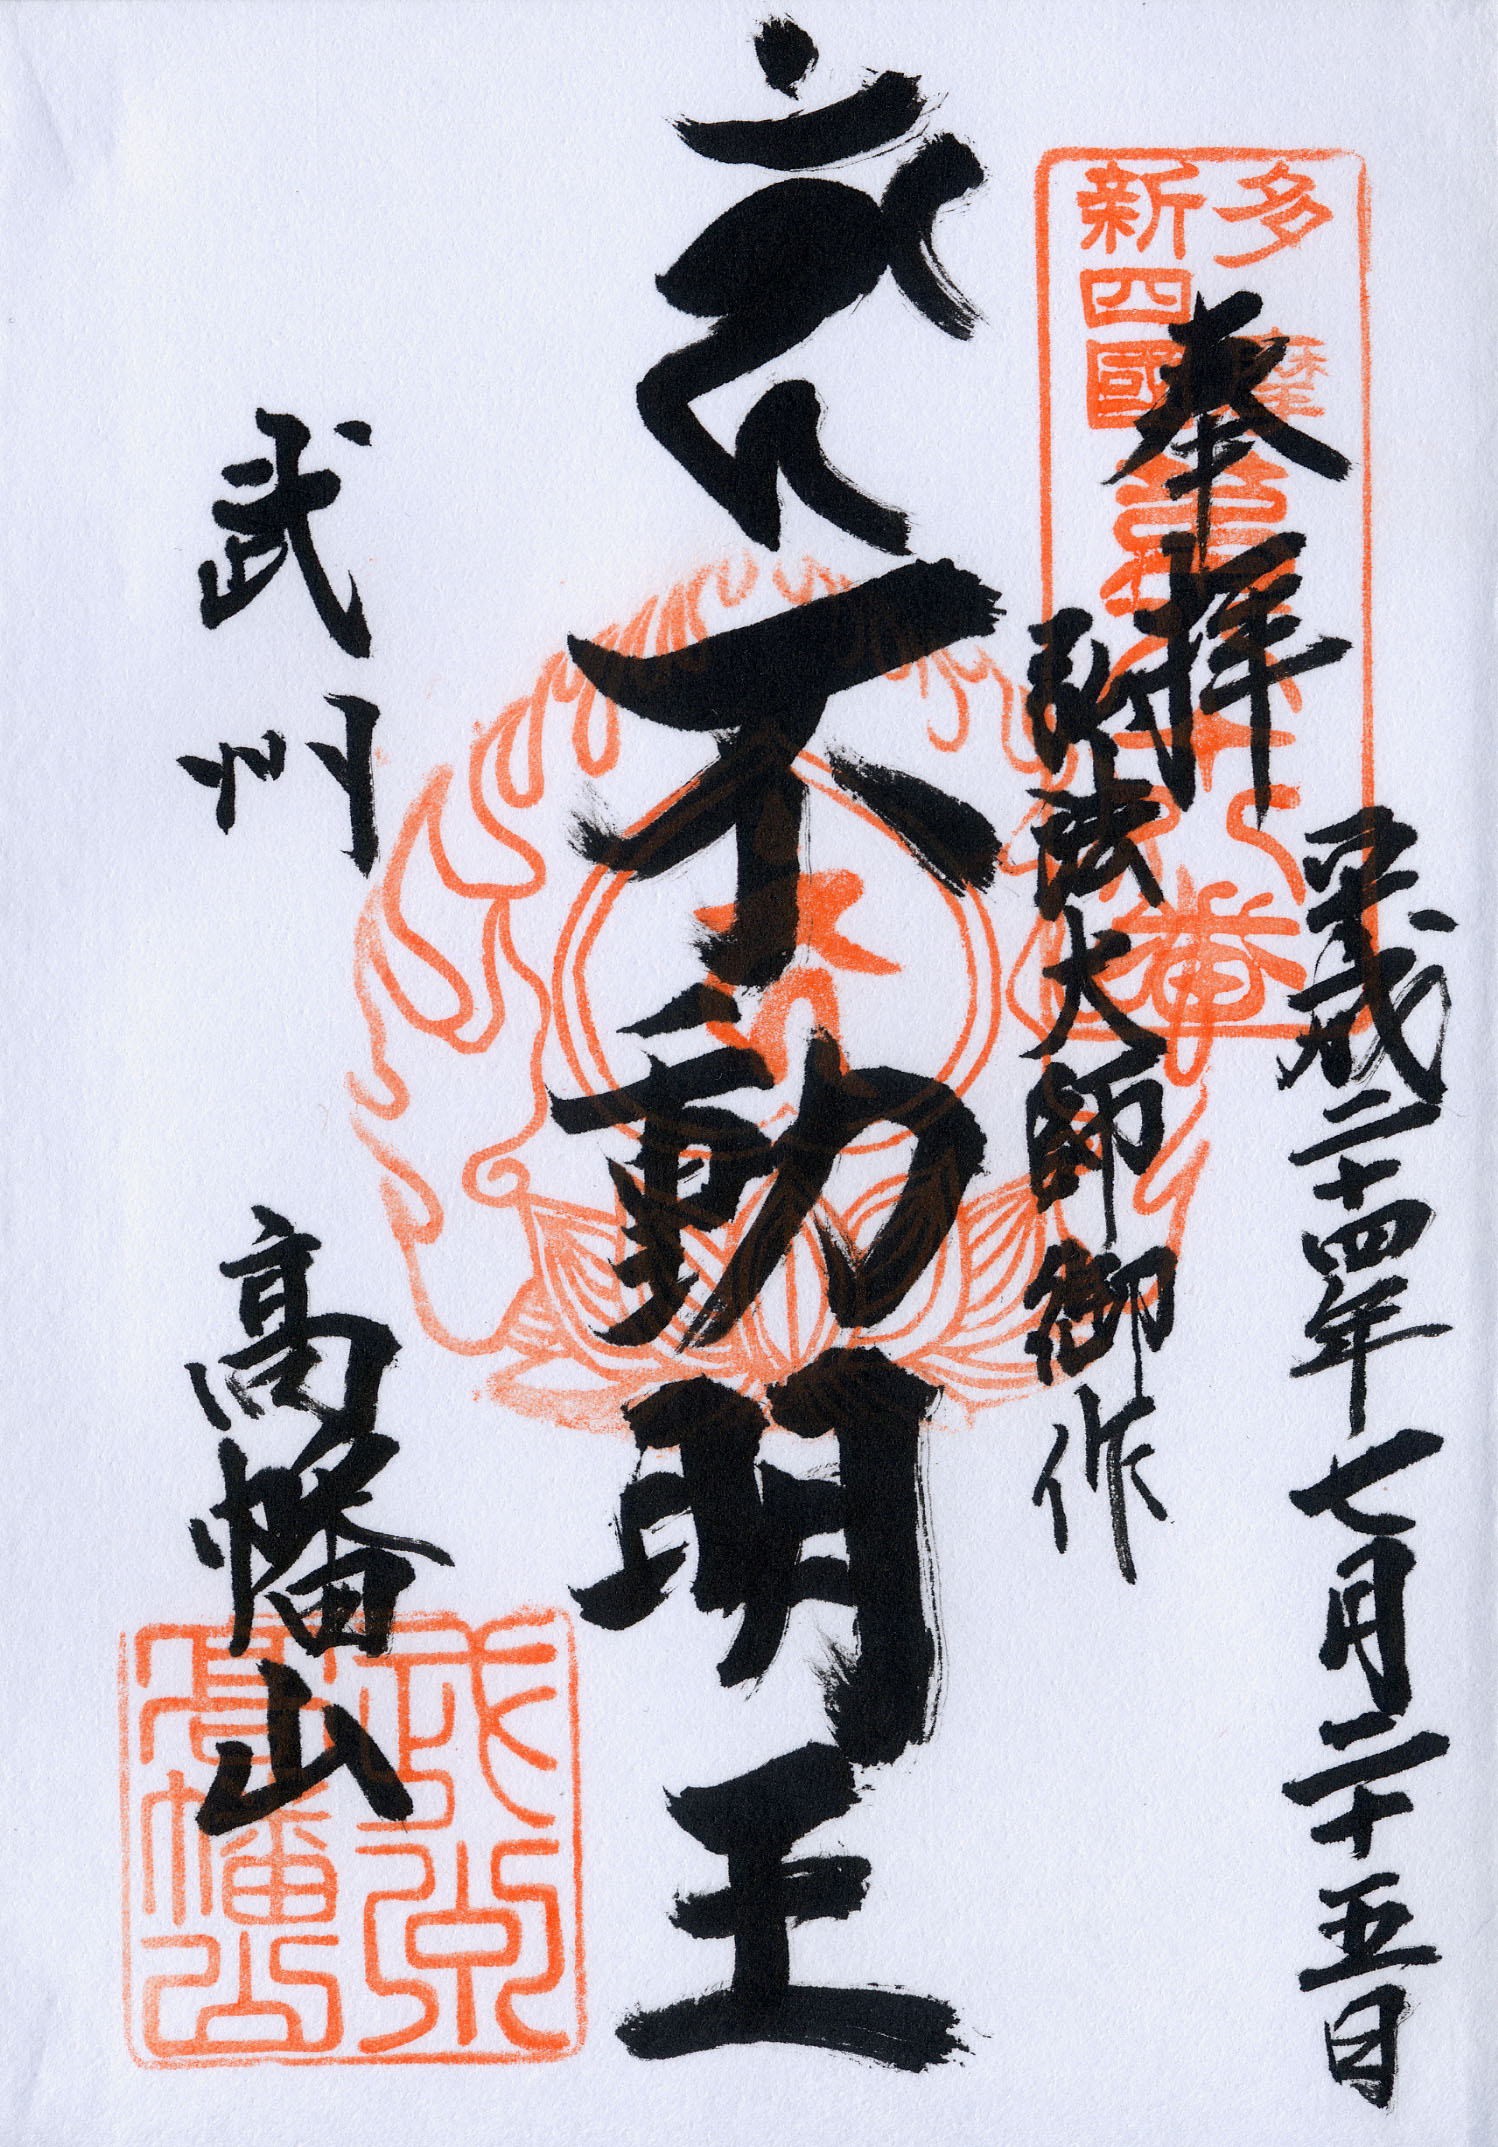 平成二十四年七月二十五日
奉拝
弘法大師御作
不動明王
武州 高幡山
多摩
新四國
八十八番
武州
高幡山